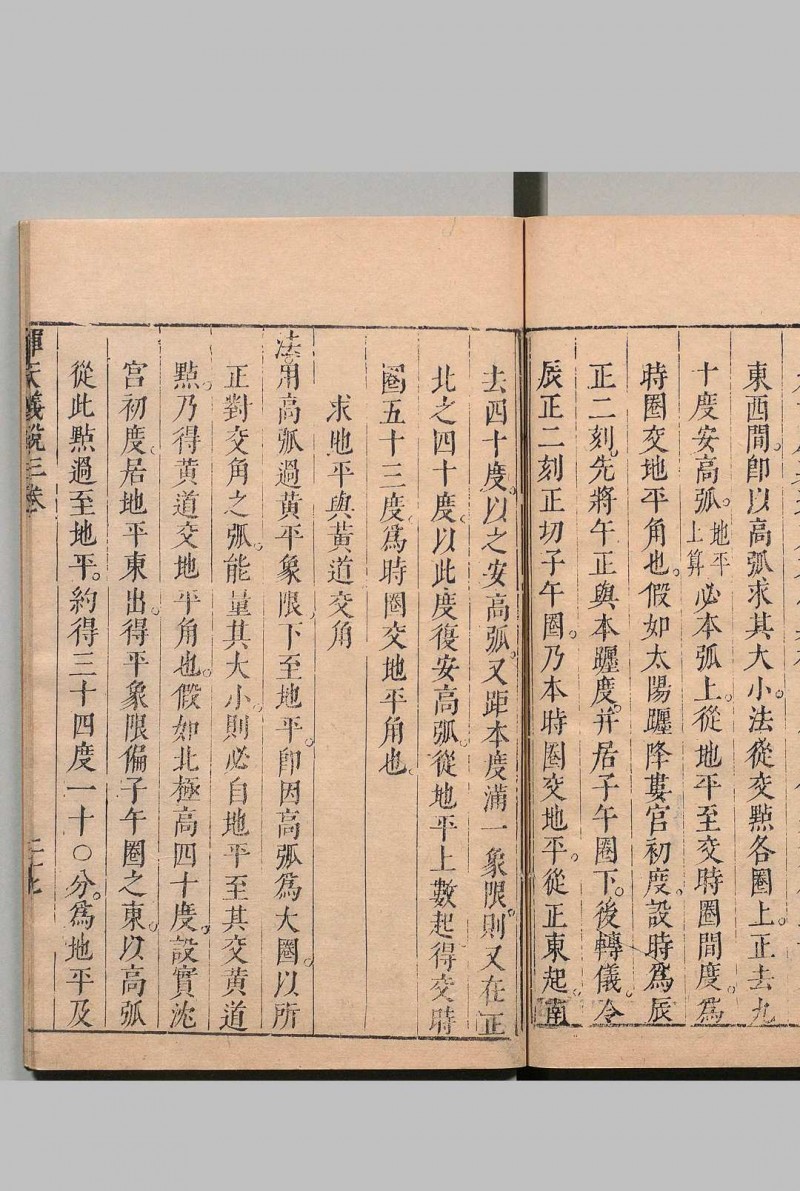 東西間。卽以高弧求其大小。法從交點各圈上。正去九
十度安高弧。地平上算必本弧上。從地平至交時圈間度。爲
時圈交地平角也。假如太陽躔降婁宮初度。設時爲辰
正二刻。先將午正與本躔度。并居子午圈下。後轉儀。令
辰正二刻正切子午圈。乃本時圈交地平。從正東起。南
去四十度。以之安高弧。又距本度滿一象限。則又在正
北之四十度。以此度復安高弧。從地平上數起得交時
圈五十三度。爲時圈交地平角也。
求地平與黃道交角
法。用高弧過黃平象限。下至地平。卽因高弧爲大圈。以所
正對交角之弧。能量其大小。則必自地平至其交黃道
點。乃得黃道交地平角也。假如北極高四十度。設實沈
宮初度。居地平東出。得平象限偏子午圈之東。以高弧
從此點過至地平。約得三十四度一十〇分。爲地平及
渾天儀說三卷
二十七